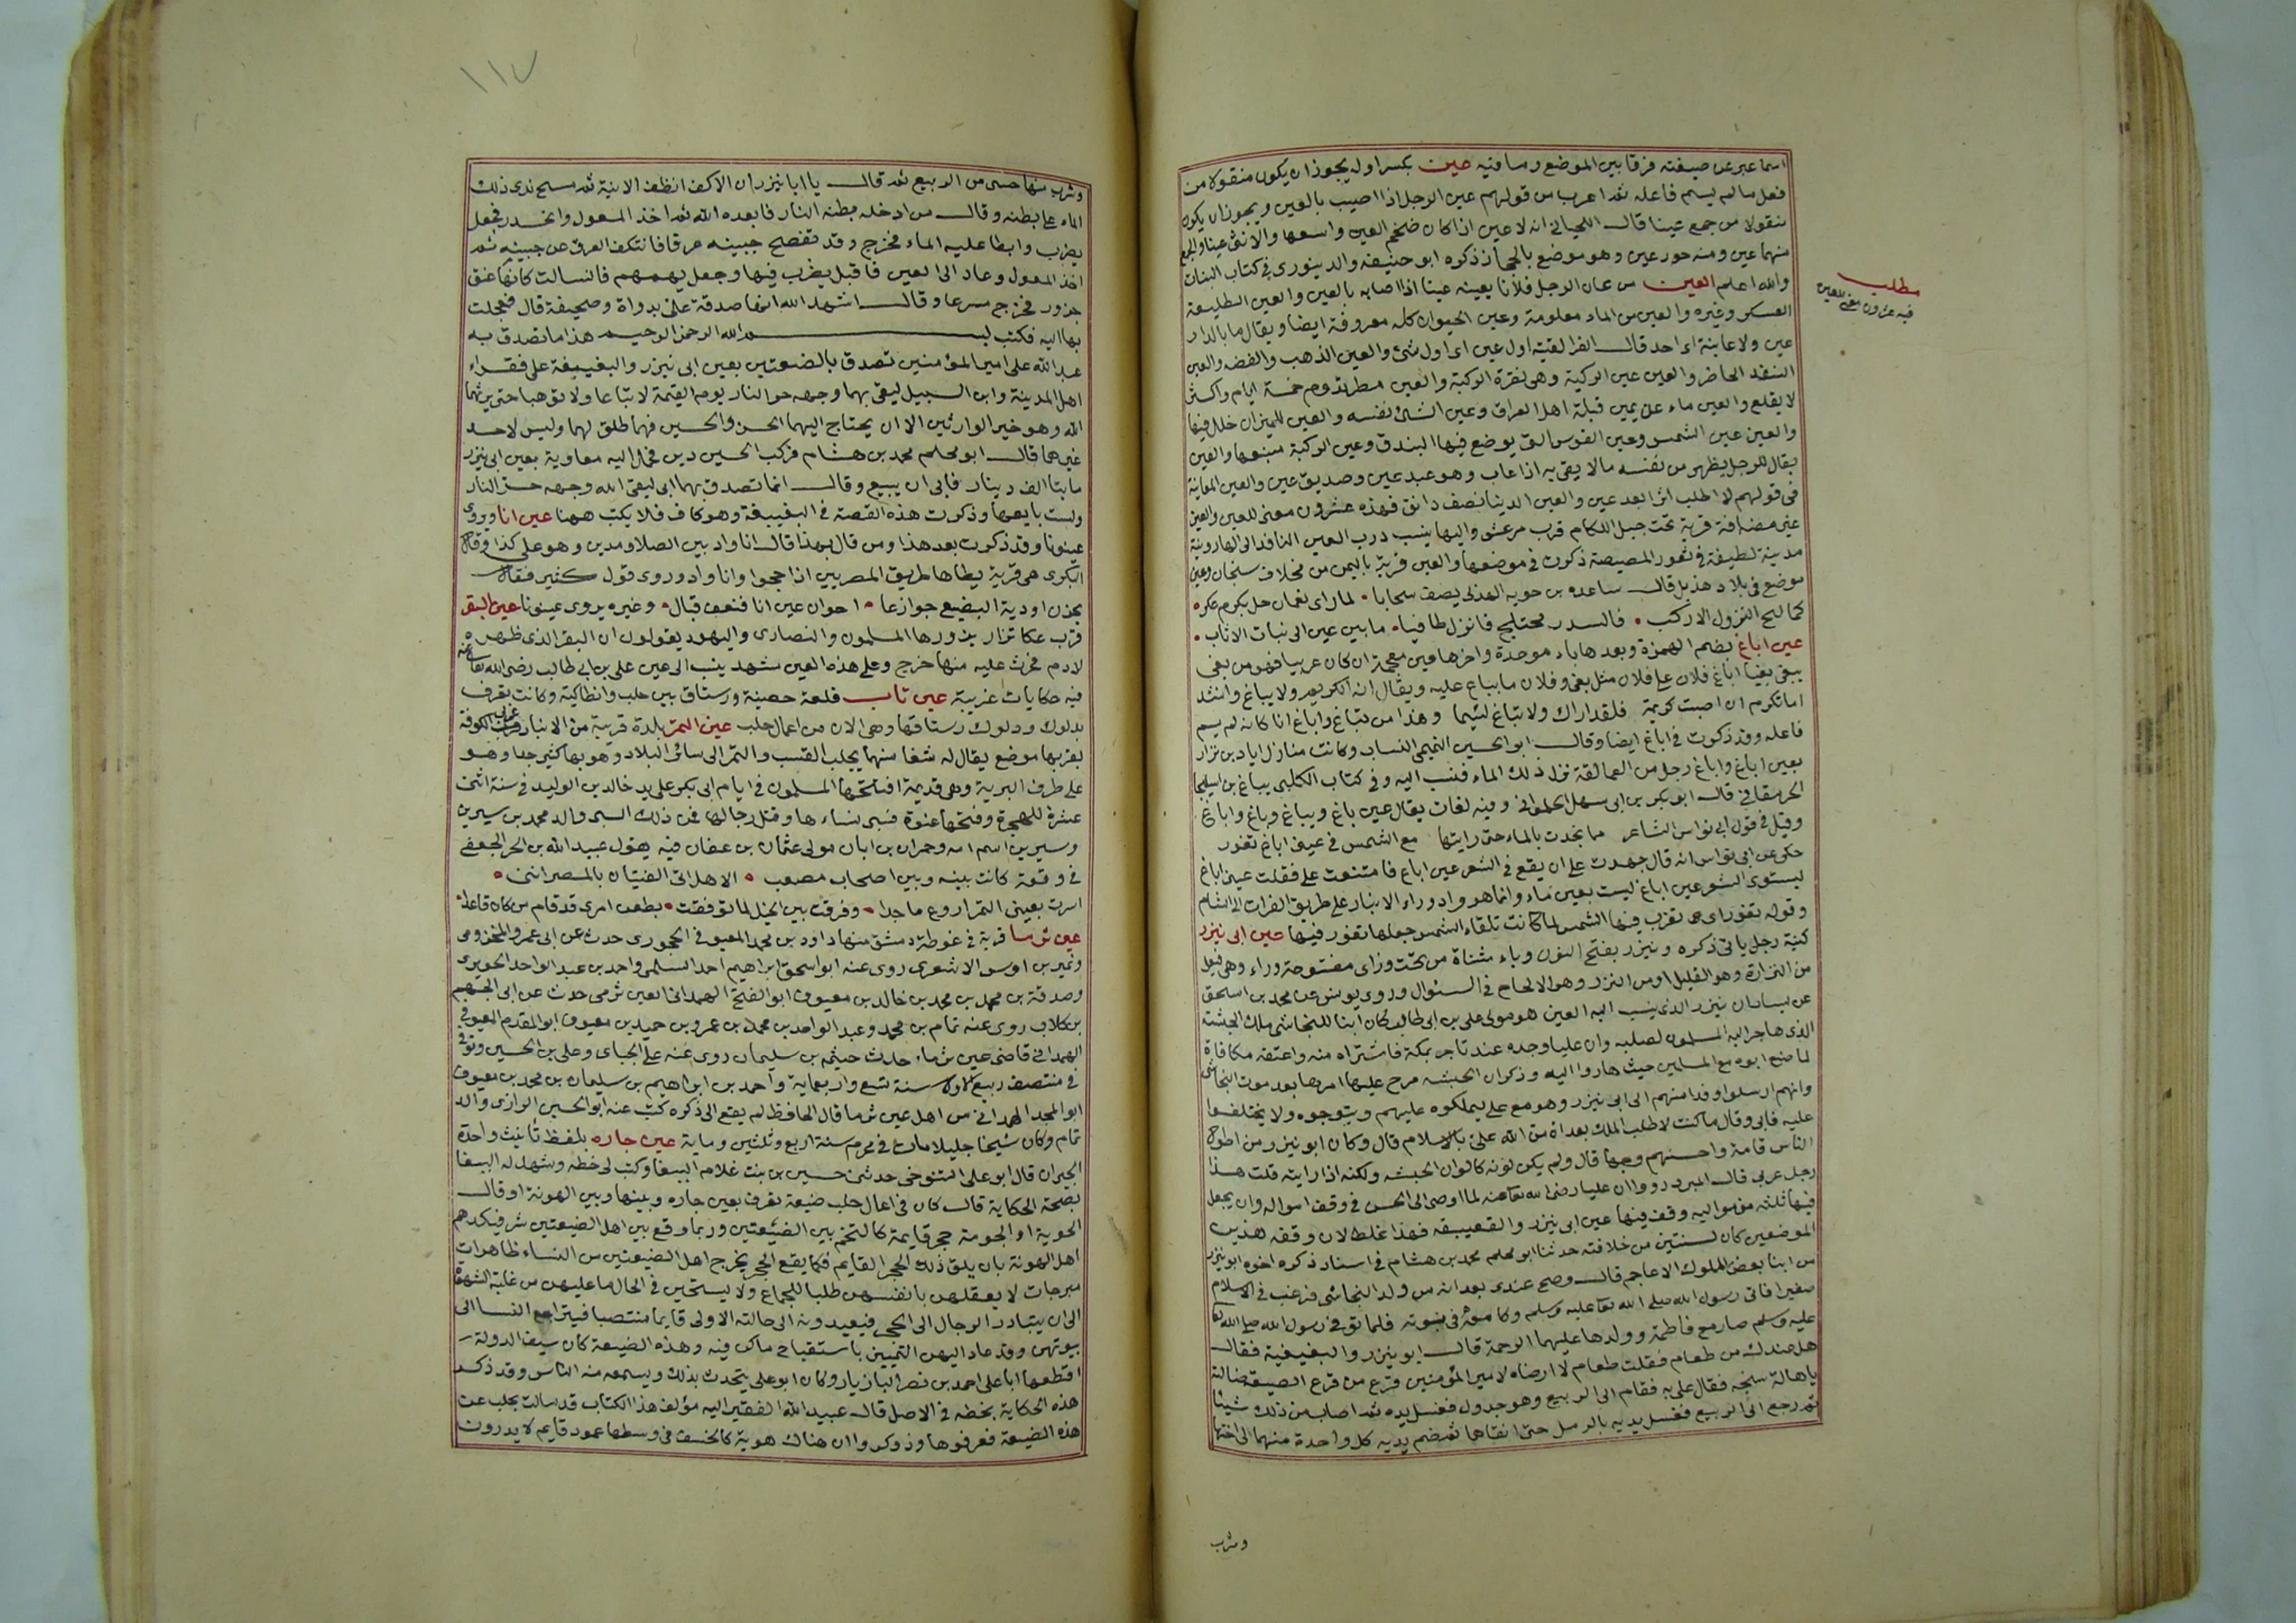 اسما غير عن صيغته فرقا بين الموضع وما فيه عين بكسر اوله يجوز ان يكون منقولا من
فعل ما لم يسم فاعله ثم اعرب من قولهم عين الرجل اذا اصيب بالعين ويجوز ان يكون
منقولا من جمع عينا قال اللحياني انه لاعين اذا كان ضخم العين واسعها والانثى عينا والجمع
منهما عين ومنه حور عين وهو موضع بالحجاز ذكره ابو حنيفه والدينوري في كتاب النبات
والله اعلم العين من عان الرجل فلانا يعينه عينا اذا اصابه بالعين والعين الطليعة
العسكر وغيره والعين من الماء معلومة وعين الحيوان كله معروفة ايضا ويقال ما بالدار
عين ولا عاينة اي احد قال الفرا لقيته اول عين اي اول شئ والعين الذهب والفضه والعين
النقد الحاضر والعين عين الركية وهي نقرة الركبة والعين مطر يدوم خمسة ايام واكثر
لا يقلع والعين ماء عن يمين قبلة اهل العراق وعين الشئ نفسه والعين للميزان خلل فيها
والعين عين الشمس وعين القوس التي يوضع فيها البندق وعين الركبة منبعها والعين
يقال للرجل يظهر من نفسه ما لا يفي به اذا غاب وهو عبد عين وصديق عين والعين المعاينة
في قولهم لا اطلب اثرا بعد عين والعين الدينا نصف دانق فهذه عشرون معنى للعين والعين
غير مضافة قرية تحت جبل اللكام قرب مرعش واليها ينسب درب العين النافذ الى الهارونية
مدينة لطيفة في ثغور المصيصة ذكرت في موضعها والعين قرية باليمن من مخلاف سنحان وعين
موضع في بلاد هذيل قال ساعده بن جويه الهذلي يصف سحابا لما راى نعمان حل بكرم عكره
كما لبج النزول الاركب فالسدر مختلج فانزل طافيا ما بين عين الى نبات الاثاب
عين اباغ بضم الهمزة وبعدها باء موحدة واخرها غين معجمة ان كان عربيا فهو من بغى
يبغي بغيا اباغ فلان على فلان مثل بغى وفلان ما يباغ عليه ويقال انه لكريم ولا يباغ وانشد
اما تكرم ان اصبت كريمة فلقد اراك ولا تباغ لئيما وهذا من تباغ واباغ انا كانه لم يسم
فاعله وقد ذكرت في اباغ ايضا وقال ابو الحسين التميمي النساب وكانت منازل اياد بن نزار
بعين اباغ واباغ رجل من العمالقة نزل ذلك الماء فنسب اليه وفي كتاب الكلبي يباغ بن اسليجا
الجرمقاني قال ابو بكر بن ابي سهل الحلواني وفيه لغات يقال عين باغ ويباغ وباغ واباغ
وقيل في قول ابي نواس الشاعر فما نجدت بالماء حتى رايتها مع الشمس في عيني اباغ تغور
حكى عن ابي نواس انه قال جهدت على ان يقع في الشعر عين اباغ فامتنعت على فقلت عيني اباغ
ليستوي الشعر عين اباغ ليست بعين ماء وانما هو واد وراء الانبار على طريق الفرات الى الشام
وقوله تغور اي تغرب فيها الشمس لما كانت تلقاء الشمس جعلها تغور فيها عين ابي نيزر
كنية رجل ياتي ذكره ونيزر بفتح النون وياء مثناة من تحت وزاى مفتوحة وراء وهي فيعل
من النزارة وهو القليل او من النزر وهو الالحاح في السئوال وروى يونس عن محمد بن اسحق
عن يسار ان نيزر الذي ينسب اليه العين هو مولى علي بن ابي طالب كان ابنا للنجاشي ملك الحبشة
الذي هاجر اليه المسلمون لصلبه وان عليا وجده عند تاجر بمكة فاشتراه منه واعتقه مكافاة
لما صنع ابوه مع المسلمين حيث هاروا اليه وذكر ان الحبشه مرج عليها امرها بعد موت النجاشي
وانهم ارسلوا وفدا منهم الى ابي نيزر وهو مع علي ليملكوه عليهم ويتوجوه ولا يختلفوا
عليه فابى وقال ما كنت لاطلب الملك بعد ان من الله علي بالاسلام قال وكان ابو نيزر من اطول
الناس قامة واحسنهم وجها قال ولم يكن لونه كالوان الحبشه ولكنه اذا رايته قلت هذا
رجل عربي قال المبرد رووا ان عليا رضي الله تعا عنه لما اوصى الى الحسن في وقف امواله وان يجعل
فيها ثلثه من مواليه وقف فيها عين ابي نيزر والقعيبقه فهذا غلط لان وقفه هذين
الموضعين كان لسنتين من خلافته حدثنا ابو محلم محمد بن هشام في اسناد ذكره اخوه ابو نيزر
من ابنا بعض الملوك الاعاجم قال وصح عندي بعد انه من ولد النجاشي فرغب في الاسلام
صغيرا فاتى رسول الله صلى الله تعا عليه وسلم وكان معه في بيوته فلما توفى رسول الله صلى الله تعا
عليه وسلم صار مع فاطمة وولدها عليهما الرحمة قال ابو نيزر والبغيبغة فقال
هل عندك من طعام فقلت طعام لا ارضاه لامير المؤمنين قرع من قرع الضيعة ضالتة
باهالة سنخه فقال علي به فقام الى الربيع وهو جدول فغسل يده ثم اصاب من ذلك شيئا
ثم رجع الى الربيع فغسل يديه بالرمل حتى انقاها ثم ضم يديه كل واحدة منهما الى اختها
وشرب
مطلب
فيه عشرون معنى للعين
١١٧
وشرب منها حسى من الربيع ثم قال يا ابا نيزر ان الاكف انظف الانية ثم مسح ندى ذلك
الماء على بطنه وقال من ادخله بطنه النار فابعده الله ثم اخذ المعول وانحدر فجعل
يضرب وابطا عليه الماء فخرج وقد تفضح جبينه عرقا فانتكف العرق عن جبينه ثم
اخذ المعول وعاد الى العين فاقبل يضرب فيها وجعل يهمهم فانسالت كانها عنق
جزور فخرج مسرعا وقال اشهد الله انها صدقة علي بدواة وصحيفة قال فعجلت
بها اليه فكتب بسم الله الرحمن الرحيم هذا ما تصدق به
عبد الله علي امير المؤمنين تصدق بالضيعتين بعين ابي نيزر والبغيبغة على فقراء
اهل المدينة وابن السبيل ليقي بهما وجهه حر النار يوم القيمة لا تباعا ولا توهبا حتى يرثهما
الله وهو خير الوارثين الا ان يحتاج اليهما الحسن والحسين فهما طلق لهما وليس لاحد
غيرهما قال ابو محلم محمد بن هشام فركب الحسين دين فحمل اليه معاوية بعين ابي نيزر
مايتا الف دينار فابى ان يبيع وقال انما تصدق بهما ابي ليقي الله وجهه حر النار
ولست بايعها وذكرت هذه القصة في البغيبغة وهو كاف فلا يكتب ههنا عين انا ويروى
عينونا وقد ذكرت بعد هذا ومن قال بهذا قال انا واد بين الصلا ومدين وهو على كذا وقال
البكري هي قرية يطاها طريق المصريين اذا حجوا وانا واد وروى قول كثير فقال
يجزن اودية البضيع جوازعا اجوان عين انا فنعف قبال وغيره يروى عينونا عين البقر
قرب عكا تزار يزورها المسلمون والنصارى واليهود يقولون ان البقر الذي ظهره
لادم فحرث عليه منها خرج وعلى هذه العين مشهد ينسب الى عين علي بن ابي طالب رضى الله تعالى عنه
فيه حكايات غريبة عين تاب قلعة حصينة ورستاق بين حلب وانطاكية وكانت تعرف
بدلوك ودلوك رستاقها وهي الان من اعمال حلب عين التمر بلدة قريبة من الانبار غربي الكوفة
بقربها موضع يقال له شفاثا منهما يجلب القسب والتمر الى سائر البلاد وهو بها كثير جدا وهو
على طرف البرية وهي قديمة افتتحها المسلمون في ايام ابي بكر على يد خالد بن الوليد في سنة اثني
عشرة للهجرة وفتحها عنوة فسبى نساءها وقتل رجالها فمن ذلك السبي والد محمد بن سيرين
وسيرين اسم امه وحمران بن ابان مولى عثمان بن عفان فيه يقول عبيد الله بن الحر الجعفي
في وقعة كانت بينه وبين اصحاب مصعب الا هل اتى الفتيان بالمصر انني
اسرت بعيني التمر اروع ماجدا وفرقت بين الخيل لما توفقت بطعن امرئ قد قام من كان قاعدا
عين ثرما قرية في غوطة دمشق منها داود بن محمد المعيوفي الحجوري حدث عن ابي عمرو المخزومي
ونمير بن اوس الاشعري روى عنه ابو اسحق ابراهيم احد السلمي واحد بن عبد الواحد الجويري
وصدقة بن محمد بن محمد بن خالد بن معيوف ابو الفتح الهمداني العين ثرمي حدث عن ابي الجهم
بن كلاب روى عنه تمام بن محمد وعبد الواحد بن محمد بن عمرو بن حميد بن معيوف ابو المقدم المعيوفي
الهمداني قاضي عين ثرماء حدث خيثمه بن سليمان روى عنه علي الجباي وعلي بن الحسين وتوفى
في منتصف ربيع الاول سنة تسع واربعماية واحمد بن ابراهيم بن سليمان بن محمد بن معيوف
ابو المجد الهمداني من اهل عين ثرما قال الحافظ لم يقع الى ذكره كتب عنه ابو الحسين الرازي والد
تمام وكان شيخا جليلا مات في محرم سنة اربع وثلثين وماية عين جاره بلفظ تانيث واحدة
الجيران قال ابو علي التنوخي حدثني حسين بن بنت غلام الببغا وكتب لي خطه وشهد له الببغا
بصحة الحكاية قال كان في اعمال حلب ضيعة تعرف بعين جاره وبينها وبين الهونة او قال
الجوية او الجومة حجر قايمة كالتخم بين الضيعتين وربما وقع بين اهل الضيعتين شر فيكدهم
اهل الهونة بان يلق ذلك الحجر القايم فكما يقع الحجر يخرج اهل الضيعتين من النساء ظاهرات
مبرجات لا يعقلهن بانفسهن طلبا للجماع ولا يستحين في الحال ما عليهن من غلبة الشهوة
الى ان يتبادر الرجال الى الحجر فيعيدونه الى حالته الاولى قايما منتصبا فيتراجع النسا الى
بيوتهن وقد عاد اليهن التمييز باستقباح ماكن فيه وهذه الضيعة كان سيف الدولة
اقطعها ابا علي احمد بن نصر البازيار وكان ابو علي يتحدث بذلك ويسمعه منه الناس وقد ذكر
هذه الحكاية بخطه في الاصل قال عبيد الله الفقير اليه مؤلف هذا الكتاب قد سالت بحلب عن
هذه الضيعة فعرفوها وذوكروا ان هناك هوية كالخسف في وسطها عمود قايم لا يدرون